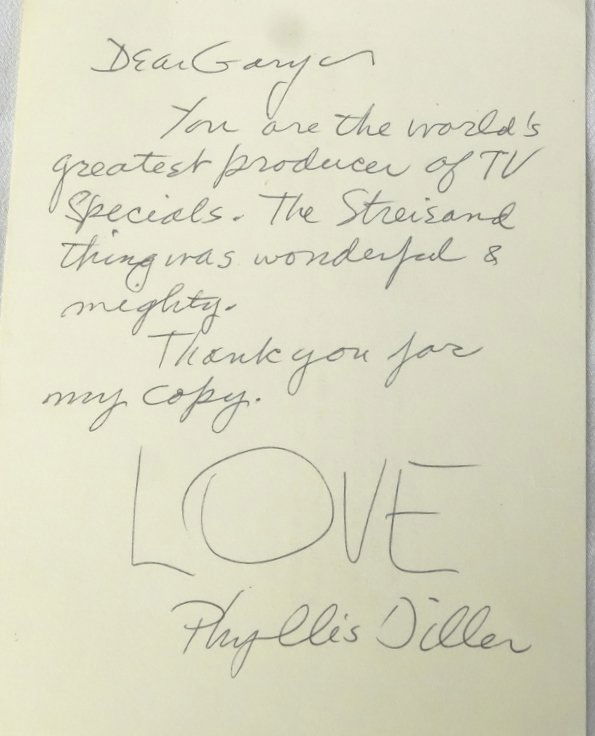 Dear Gary
You are the world's
greatest producer of TV
Specials. The Streisand
thing was wonderful &
mighty.
Thank you for
my copy.
LOVE
Phyllis Diller